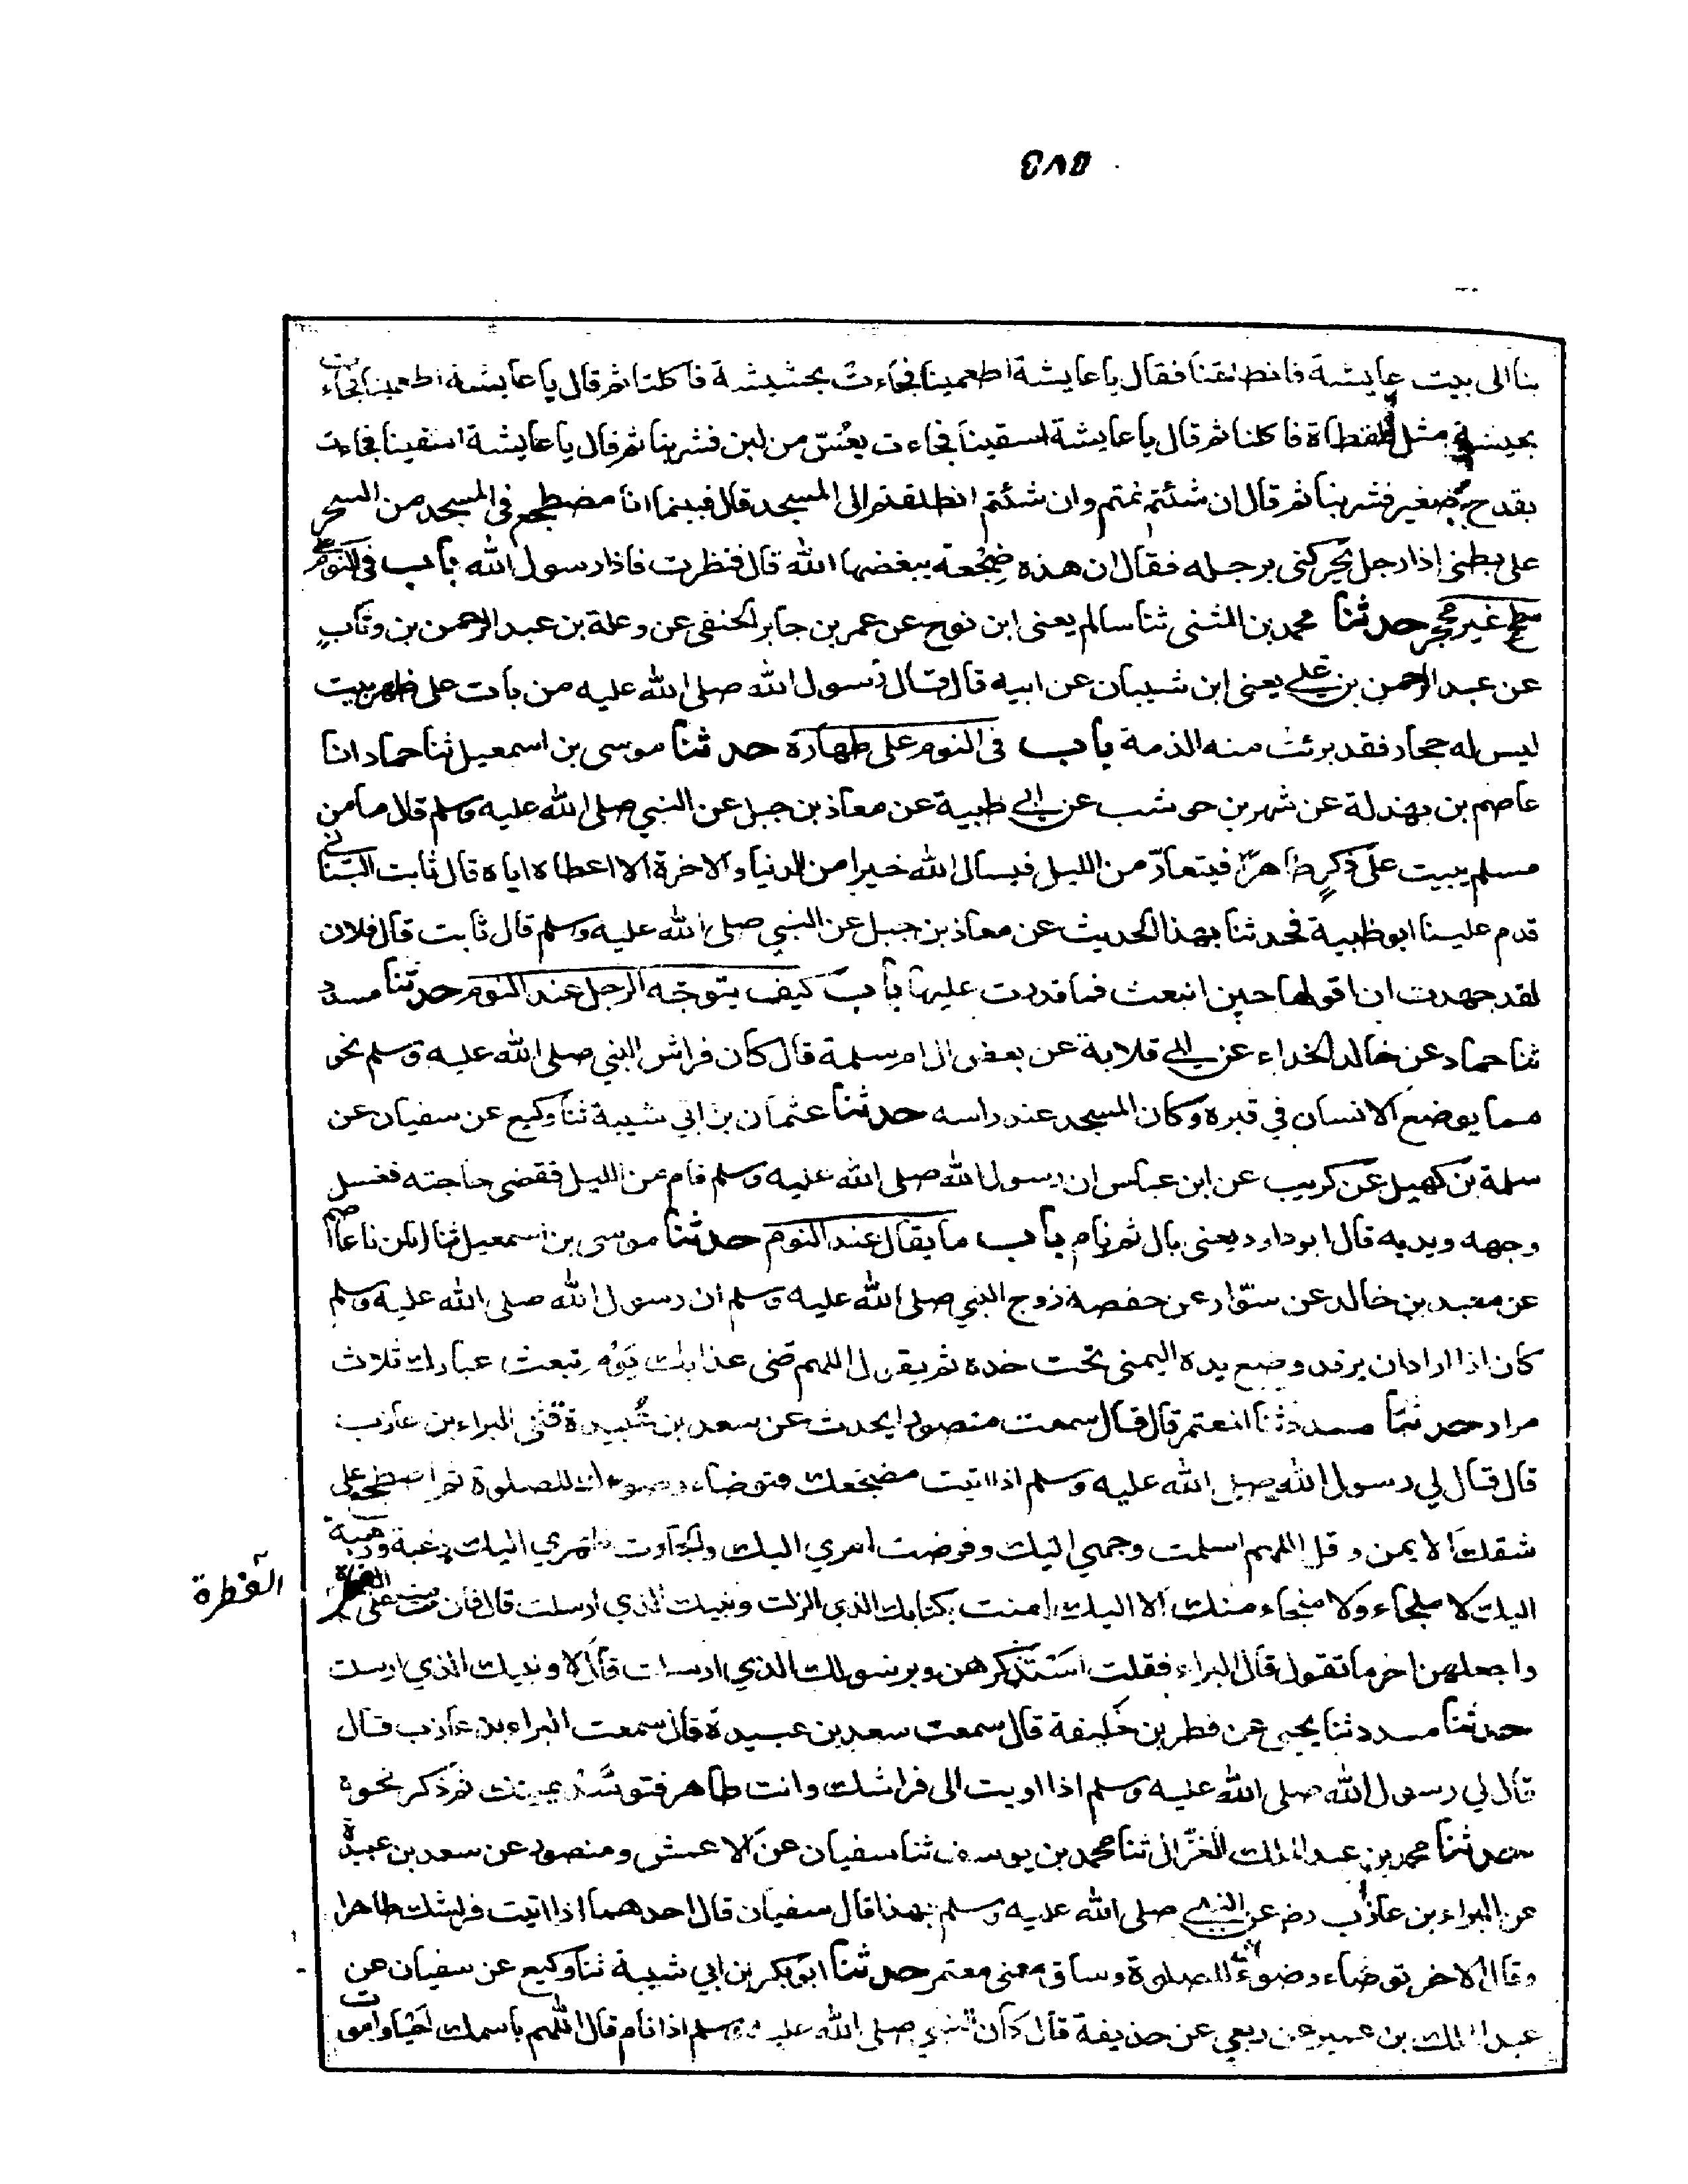 ٥٧٤
بنا الى بيت عايشة فانطلقنا فقال يا عايشة اطعمينا فجاءت بحشيشة فاكلنا ثم قال يا عايشة اطعمينا فجاءت
بحيسة مثل القطاة فاكلنا ثم قال يا عايشة اسقينا فجاءت بعُسّ من لبن فشربنا ثم قال يا عايشة اسقينا فجاءت
بقدح صغير فشربنا ثم قال ان شئتم نمتم وان شئتم انطلقتم الى المسجد قال فبينما انا مضطجع في المسجد من السحر
على بطني اذا رجل يحركني برجله فقال ان هذه ضجعة يبغضها الله قال فنظرت فاذا رسول الله باب في النوم على
سطح غير محجر حدثنا محمد بن المثنى ثنا سالم يعنى ابن نوح عن عمر بن جابر الحنفي عن وعلة بن عبد الرحمن بن وثابٍ
عن عبد الرحمن بن علي يعنى ابن شيبان عن ابيه قال قال رسول الله صلى الله عليه من بات على ظهر بيت
ليس له حجار فقد برئت منه الذمة باب في النوم على طهارة حدثنا موسى بن اسمعيل ثنا حماد انا
عاصم بن بهدلة عن شهر بن حوشب عن ابي ظبية عن معاذ بن جبل عن النبي صلى الله عليه وسلم قال ما من
مسلم يبيت على ذكرٍ طاهرًا فيتعارّ من الليل فيسال الله خيرا من الدنيا والاخرة الا اعطاه اياه قال ثابت البناني
قدم علينا ابو ظبية فحدثنا بهذا الحديث عن معاذ بن جبل عن النبي صلى الله عليه وسلم قال ثابت قال فلان
لقد جهدت ان اقولها حين انبعث فما قدرت عليها باب كيف يتوجّه الرجل عند النوم حدثنا مسدد
ثنا حماد عن خالد الحذاء عن ابي قلابة عن بعض ال ام سلمة قال كان فراش النبي صلى الله عليه وسلم نحو
مما يوضع الانسان في قبره وكان المسجد عند راسه حدثنا عثمان بن ابي شيبة ثنا وكيع عن سفيان عن
سلمة بن كهيل عن كريب عن ابن عباس ان رسول الله صلى الله عليه وسلم قام من الليل فقضى حاجته فغسل
وجهه ويديه قال ابو داود يعنى بال ثم نام باب ما يقال عند النوم حدثنا موسى بن اسمعيل ثنا ابان نا عاصم
عن معبد بن خالد عن سوّار عن حفصة زوج النبي صلى الله عليه وسلم ان رسول الله صلى الله عليه وسلم
كان اذا اراد ان يرقد وضع يده اليمنى تحت خده ثم يقول اللهم قني عذابك يوم تبعث عبادك ثلاث
مرار حدثنا مسدد ثنا المعتمر قال قال سمعت منصورا يحدث عن سعد بن عُبيدة قثنى البراء بن عازب
قال قال لي رسول الله صلى الله عليه وسلم اذا اتيت مضجعك فتوضاء وضوءك للصلوة ثم اضطجع على
شقك الايمن وقل اللهم اسلمت وجهي اليك وفوضت امري اليك والجاءت ظهري اليك رغبة ورهبة
اليك لا ملجاء ولا منجاء منك الا اليك امنت بكتابك الذي انزلت ونبيك الذي ارسلت قال فان مت مت على الفطرة
الفطرة
واجعلهن اخر ما تقول قال البراء فقلت استذكرهن وبرسولك الذي ارسلت قال لا ونبيك الذي ارسلت
حدثنا مسدد ثنا يحيى عن فطر بن خليفة قال سمعت سعد بن عبيدة قال سمعت البراء بن عازب قال
قال لي رسول الله صلى الله عليه وسلم اذا اويت الى فراشك وانت طاهر فتوسّد يمينك ثم ذكر نحوه
حدثنا محمد بن عبد الملك الغزّال ثنا محمد بن يوسف ثنا سفيان عن الاعمش ومنصور عن سعد بن عبيدة
عن البراء بن عازب رضـ عن النبي صلى الله عليه وسلم بهذا قال سفيان قال احدهما اذا اتيت فراشك طاهرا
وقال الاخر توضاء وضوءك للصلوة وساق معنى معتمر حدثنا ابو بكر بن ابي شيبة ثنا وكيع عن سفيان عن
عبد الملك بن عمير عن ربعي عن حذيفة قال كان النبي صلى الله عليه وسلم اذا نام قال اللهم باسمك احيا واموت